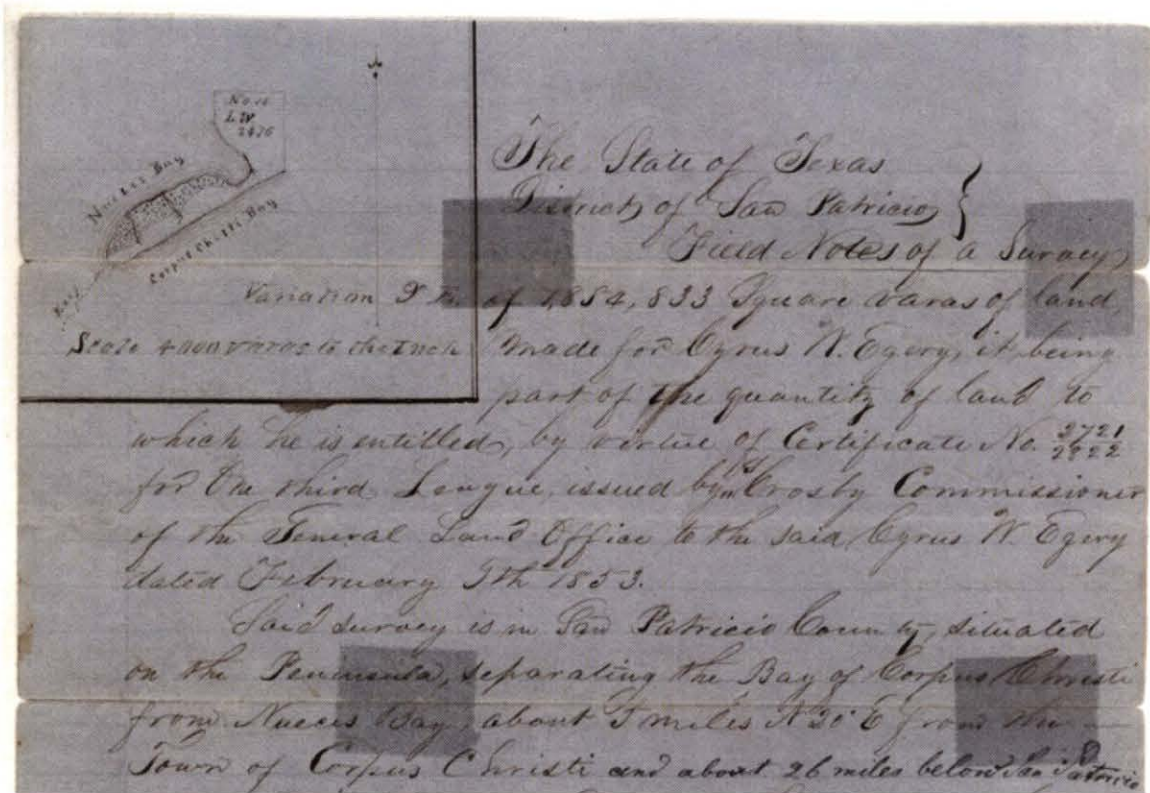 No 10
L W
2476
Nueces Bay
Corpus Christi Bay
Reef
Variation 9°
Scale 4000 varas to the Inch
The State of Texas
District of San Patricio
Field Notes of a Survey
of 1,854,833 Square varas of land,
made for Cyrus W. Egery, it being
part of the quantity of land to
which he is entitled, by virtue of Certificate No. 2721/2822
for the third League, issued by Crosby Commissioner
of the General Land Office to the said Cyrus W. Egery
dated February 9th 1853.
Said survey is in San Patricio County, situated
on the Peninsula, separating the Bay of Corpus Christi
from Nueces Bay, about 5 miles N 30° E from the
Town of Corpus Christi and about 26 miles below San Patricio